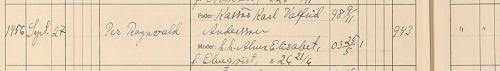 Fader: Kassör Karl Valfrid 98 9/11
1456 Sept. 27 Per Ragnvald Andersson 943 " "
Moder: h. h. Alma Elisabet, 03 25/5 1
f. Elmqvist, v. 26 21/6